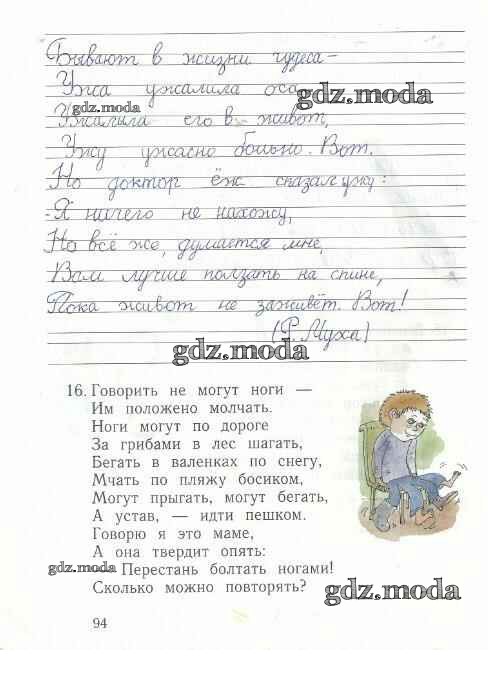 Бывают в жизни чудеса –
Ужа ужалила оса
gdz.moda
gdz.moda
Ужалила его в живот,
Ужу ужасно больно. Вот.
Но доктор ёж сказал ужу:
-Я ничего не нахожу,
Но всё же, думается мне,
Вам лучше ползать на спине,
Пока живот не заживёт. Вот!
(Р. Муха)
gdz.moda
16. Говорить не могут ноги —
Им положено молчать.
Ноги могут по дороге
За грибами в лес шагать,
Бегать в валенках по снегу,
Мчать по пляжу босиком,
Могут прыгать, могут бегать,
А устав, — идти пешком.
Говорю я это маме,
А она твердит опять:
gdz.moda Перестань болтать ногами!
Сколько можно повторять?
gdz.moda
94